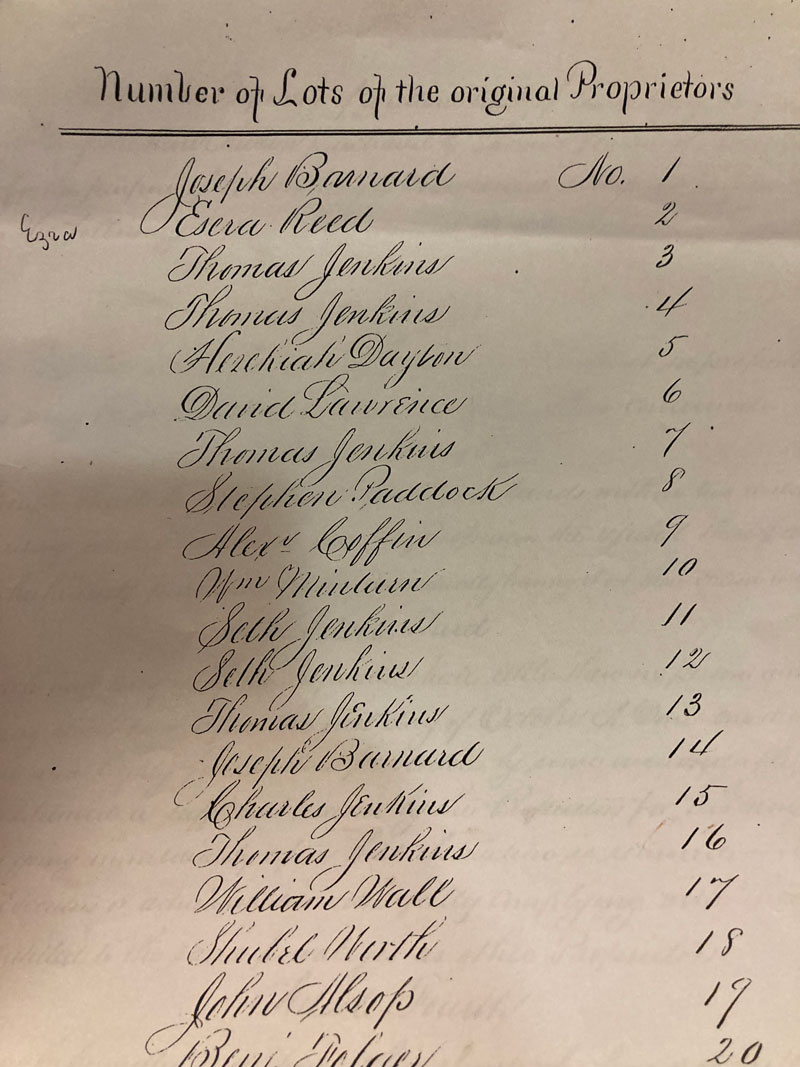 Number of Lots of the original Proprietors
Joseph Barnard No. 1
Ezra Esera Reed 2
Thomas Jenkins 3
Thomas Jenkins 4
Hezekiah Dayton 5
David Lawrence 6
Thomas Jenkins 7
Stephen Paddock 8
Alexr Coffin 9
Wm Minturn 10
Seth Jenkins 11
Seth Jenkins 12
Thomas Jenkins 13
Joseph Barnard 14
Charles Jenkins 15
Thomas Jenkins 16
William Wall 17
Shubel Worth 18
John Alsop 19
Benj Folger 20